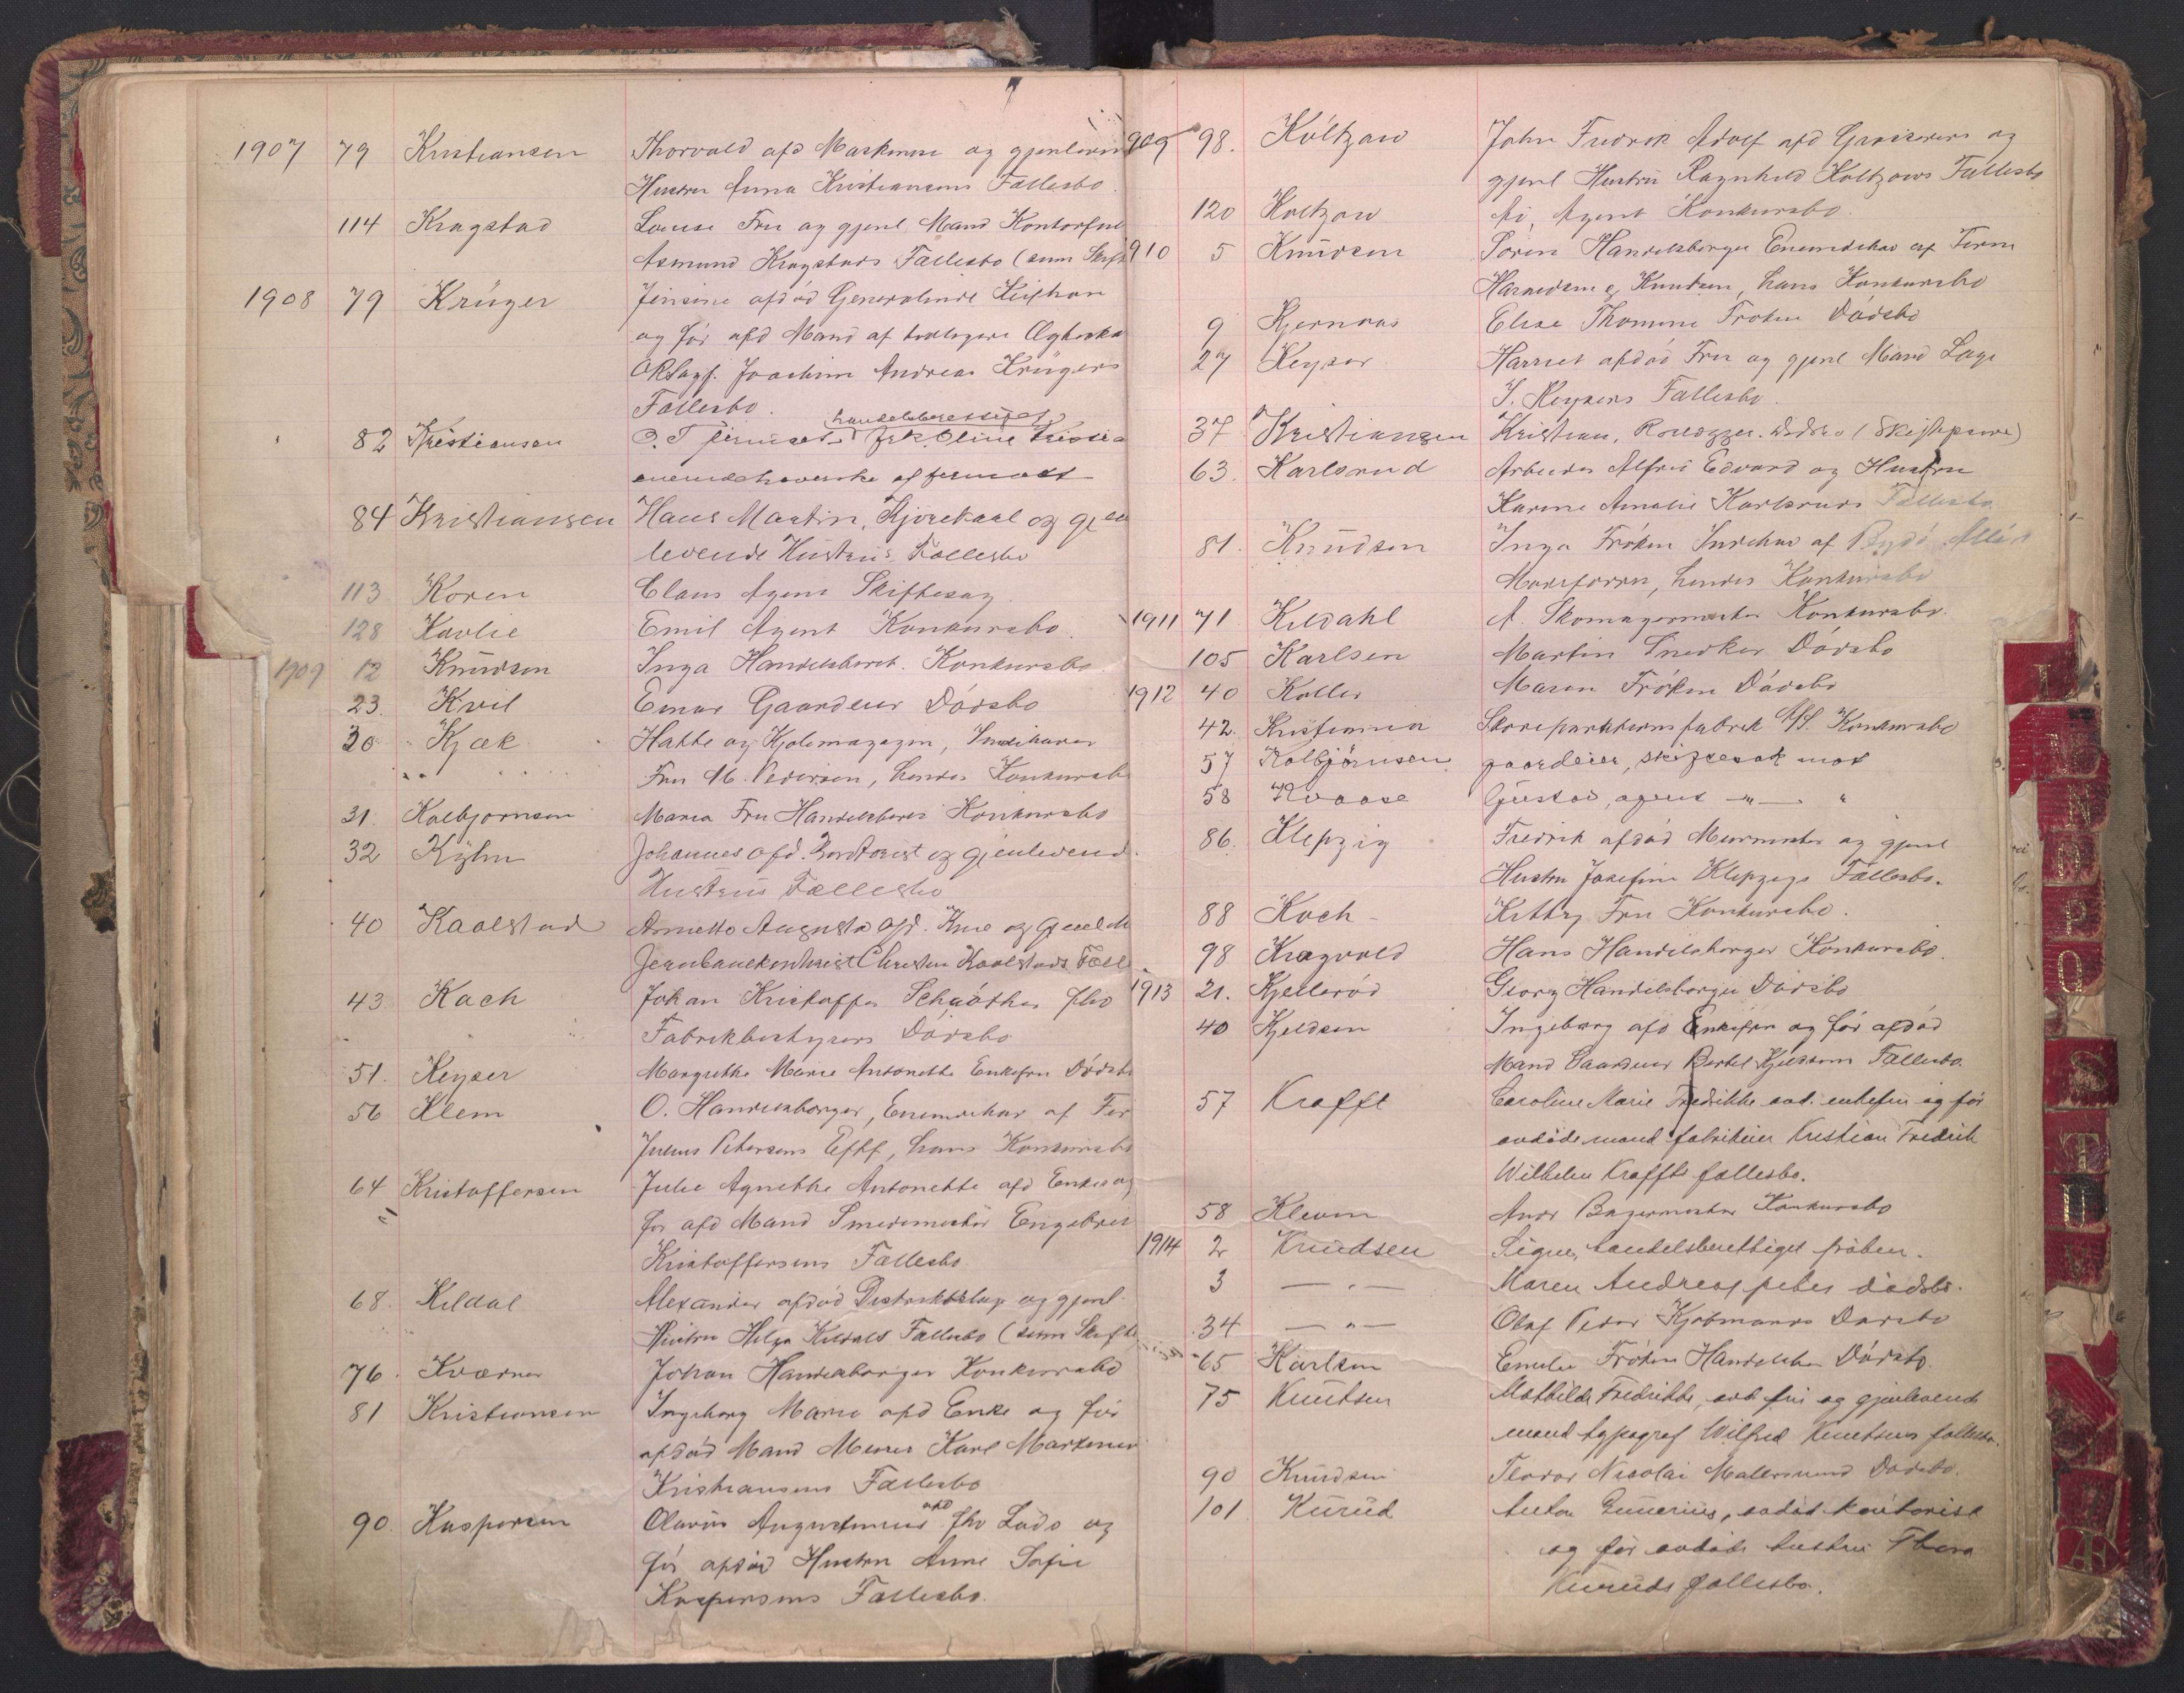 1907 79 Kristiansen Thorvald afd Maskinm og gjenlevn
Hustru Anna Kristiansens Fællesbo.
114 Kragstad Louise Fru og gjenl. Mand Kontorfuld
Asmund Kragstads Fællesbo (samt Skift
1908 79 Krüger Jensine afdød
og før afd Mand af
Joachim Andreas Krügers
Fællesbo.
handelsberettiget
82 Kristiansen O. T firmaet frk. Oline Kristi
enemdehaverske af firmaet
84 Kristiansen Hans Martin, Kjørekarl og gjen
levende Hustrus Fællesbo
113 Koren Claus Agent Skiftesag
128 Kavlie Emil Agent Konkursbo.
1909 12 Knudsen Inga Handelsberet. Konkursbo
23. Kvil Einar Gaardeier Dødsbo
30 Kjæk Hatte og Kjolemagazin, Indehaver
Fru M. Pedersen, hendes Konkursb
31. Kolbjørnsen Maria Fru Handelsberet Konkursbo
32 Kÿhn Johannes afd. og gjenlevend.
Hustrus Fællesbo
40 Kaalstad Augusta afd. Frue og gjenl M
Christen Kaalstads Fæll
43. Koch Johan Kristoffer
Fabrikbestyrers Dødsbo
51. Keyser Margrethe Marie Antonette Enkefru Dødsb
56 Klem O. Handelsborger, Enemdehav af Fir
Julius Petersens Eftf, hans Konkursbo
64 Kristoffersen Julie Agnethe Antonette afd Enke og
før afd Mand Smedemester Engebret
Kristoffersens Fællesbo.
68. Kildal Alexander afdød Distriktslæge og gjenl.
Hustru Helga Kildals Fællesbo (samt Skifte
76. Kværner Johan Handelsborger Konkursbo
81 Kristiansen Ingeborg Marie afd Enke og før
afdød Mand Murer Karl
Kristiansens Fællesbo
90. Kaspersen afd og
før afdød Hustru Anne Sofie
Kaspersens Fællesbo.
1909 98. Køltzow John Fredrik Adolf afd Grosserer og
gjenl Hustru Ragnhild Køltzows Fællesbo
120 Koltzow Agent Konkursbo.
1910 5 Knudsen Søren Handelsborger Enemdehav af Firma
& Knutsen, hans Konkursbo
9 Kjernaas Elise Thomine Frøken Dødsbo
27 Keyser Harriet afdød Fru og gjenl Mand Læge
J. Keysers Fællesbo.
37 Kristiansen Kristian, dødsbo (Skifteprøve)
63. Karlsrud Arbeider Alfred Edvard og Hustru
Karine Amalie Karlsruds Fællesbo.
81. Knudsen Inga Frøken Indehav af Bygdø Allés
Modeforr, hendes Konkursbo
1911 71 Kildahl A. Skomagermester Konkursbo.
105 Karlsen Martin Snedker Dødsbo
1912 40 Koller Maren Frøken Dødsbo
42. Kristiania fabrik A/S. Konkursbo
57 Kolbjørnsen gaardeier, skiftesak mot
58 Kvaase Gustav, agent — " — "
86. Klepzig Fredrik afdød Murmester og gjenl
Hustru Josefine Klepzigs Fællesbo.
88 Koch Kitty Fru Konkursbo.
98 Kragvold Hans Handelsborger Konkursbo.
1913 21. Kjellerød Georg Handelsborger Dødsbo
40 Kjeldsen Ingeborg afd Enkefru og før afdød
Mand Gaardeier Bertel Kjeldsens Fællesbo.
57 Krafft Caroline Marie Fredrikke avd. enkefru og før
avdøde mand fabrikeier Kristian Fredrik
Wilhelm Kraffts fællesbo.
58 Klevem Andr Bagermester Konkursbo
1914 2 Knudsen Signe, handelsberettiget frøken.
3 — " — Maren Andreas dødsbo.
34 — " — Olaf Peder Kjøbmands Dødsbo
65 Karlsen Emilie Frøken Handelsber Dødsbo.
75 Knutsen Mathilde Fredrikke, avd. fru og gjenlevende
mand typograf Wilfred Knutsens fællesbo.
90 Knudsen Teodor Nicolai Møllersvend Dødsbo.
101 Kurud Anton Gunerius, avdød kontorist
og før avdøde hustru Thora
Kuruds fællesbo.
I
M
N
O
P
S
T
U
Æ